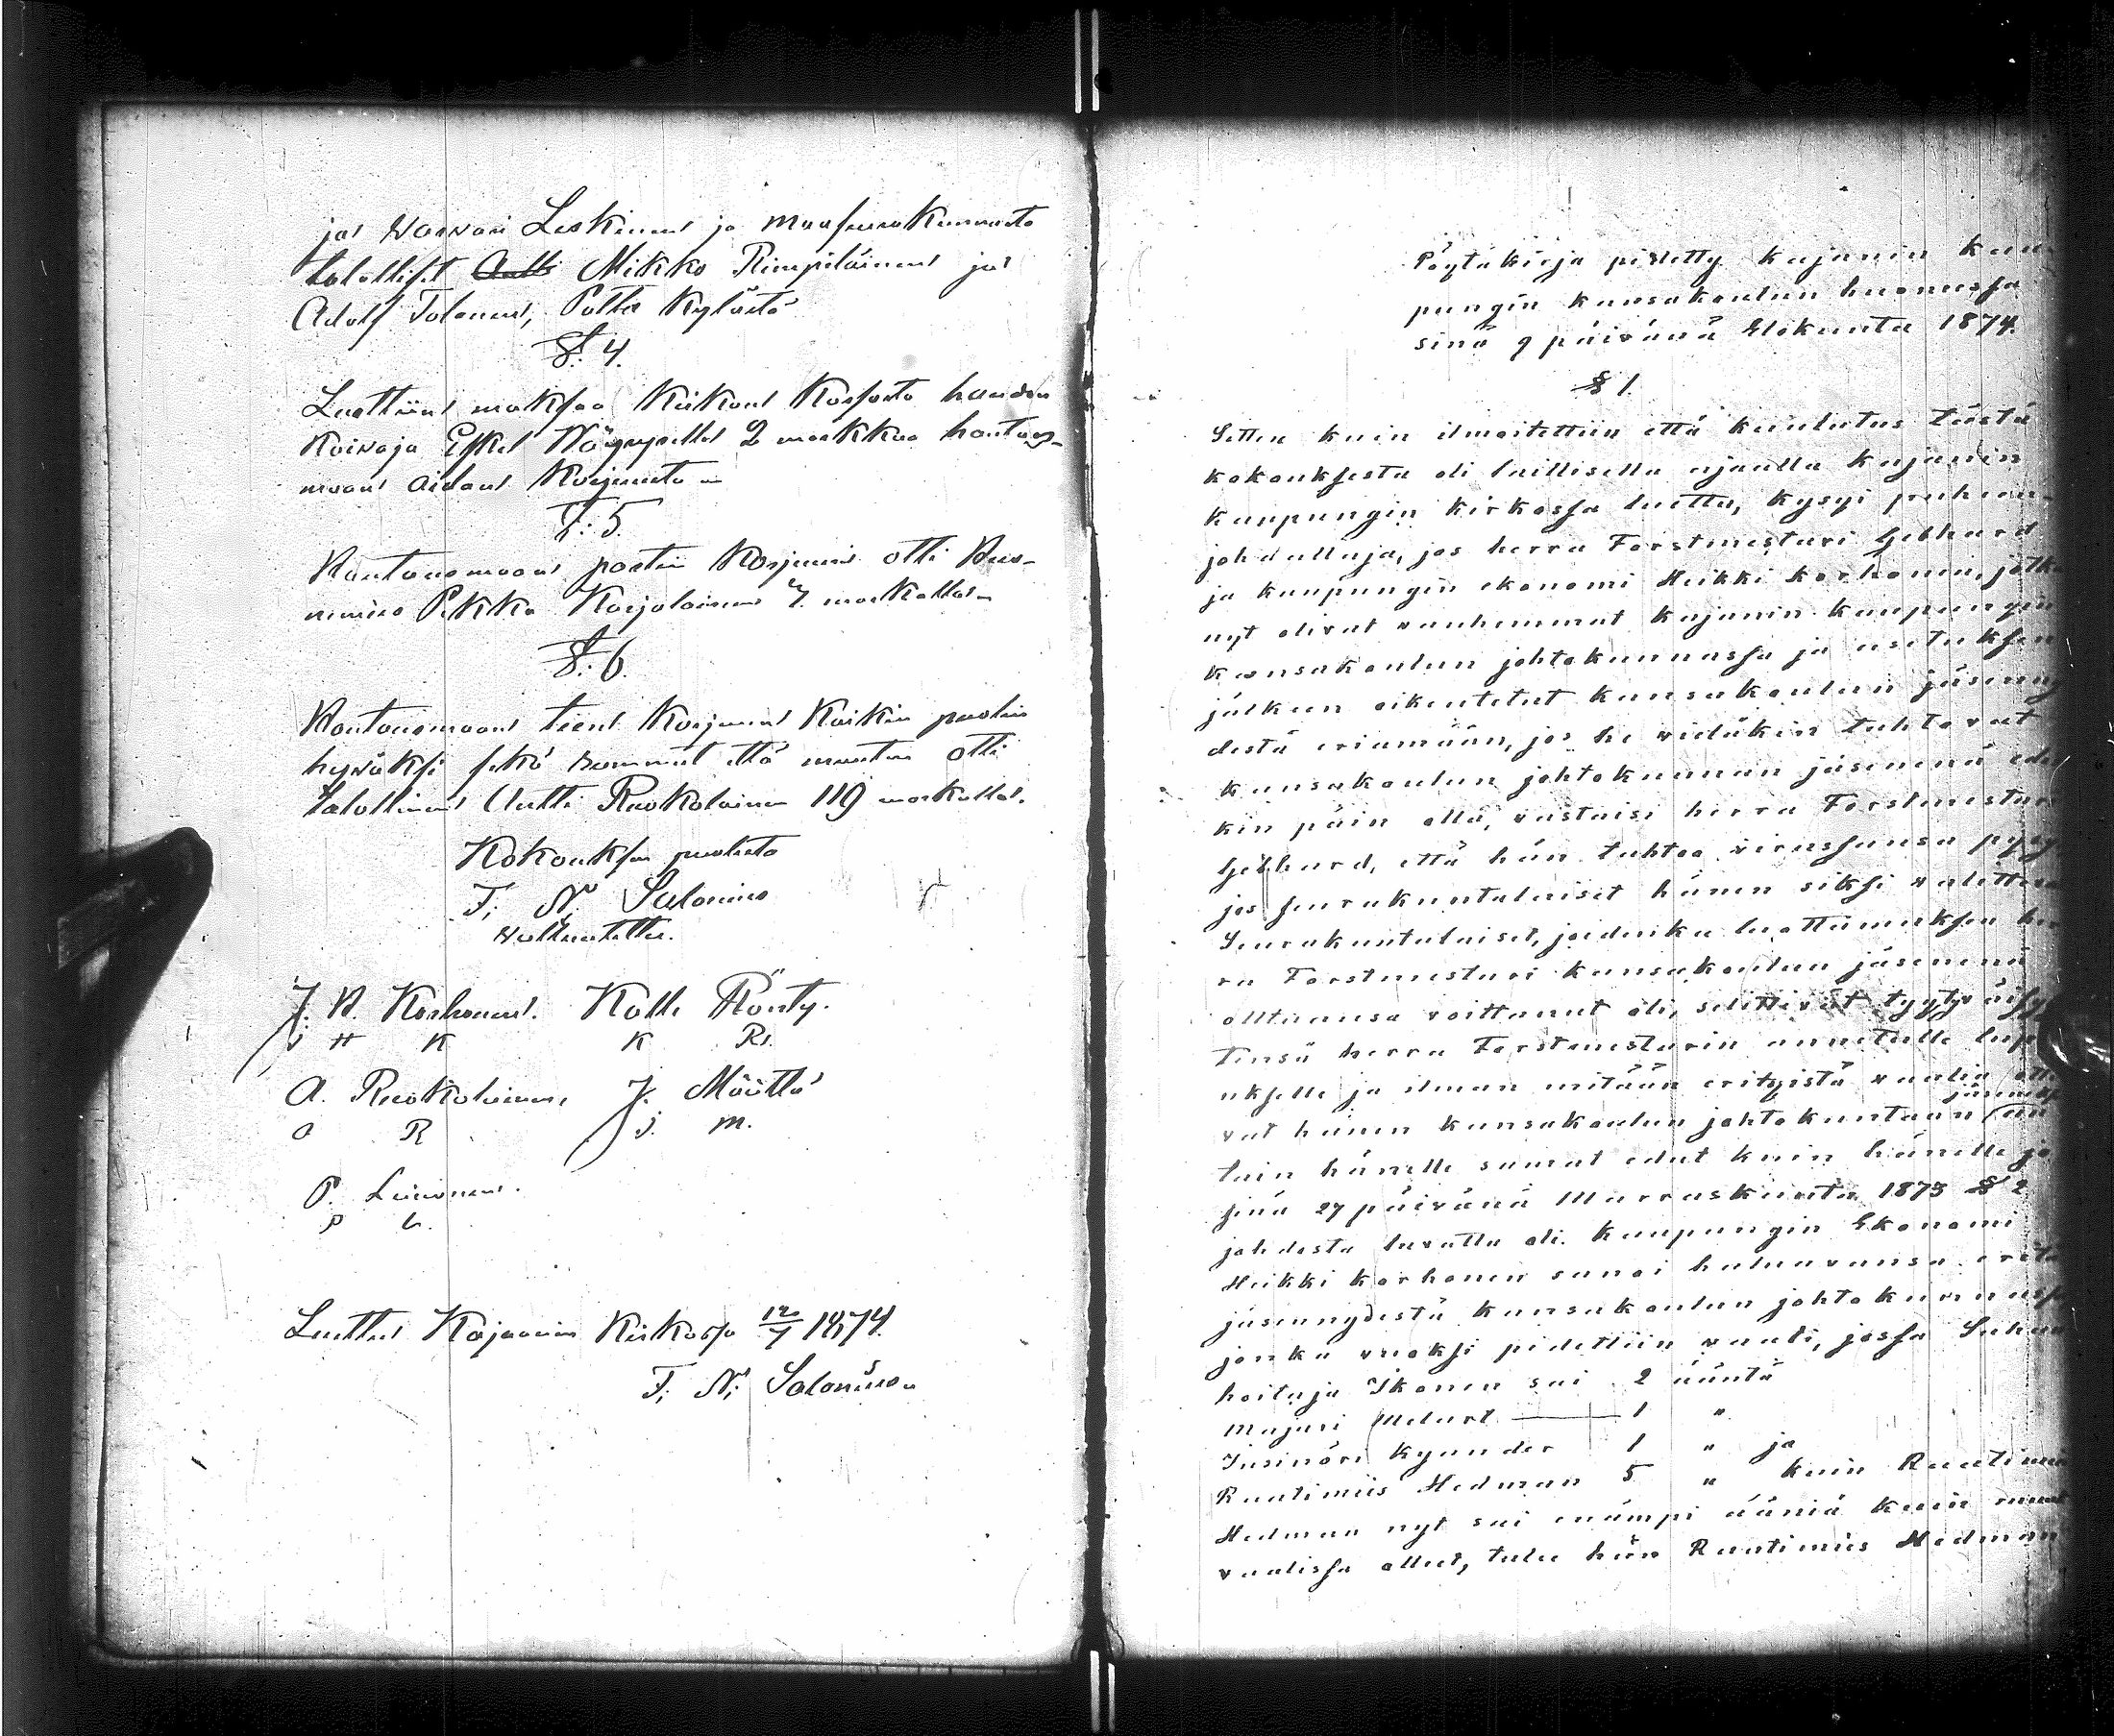 ja Waivari Leskinen ja maaseurakunnasta
talolliset Antti Mikko Rimpiläinen ja
Adolf Tolonen, Poltta Kylästä
§. 4.
Luettiin maksaa Kirkon Kassasta haudan
Kaivaja Eskel Väyryselle 2 markkaa hautaus-
maan aidan Korjuusta
§: 5.
Hautausmaan portin Korjuun otti
Pekka Karjalainen 7. markalla
§. 6.
Hautausmaan tien Korjuun Kaikin puolin
hyväksi sekä rommut että muuten otti
talollinen Antti Ruokolainen 119 markalla.
Kokouksen puolesta
F. N. Salonius
valtuutettu.
J. H. Korhonen. Kalle Rönty.
J H K K R.
A. Ruokolainen, J. Määttä
A R J. M.
P. Leinonen.
P L.
Luettu Kajaanin Kirkossa 12/7 1874.
F. N. Salonius

Pöytäkirja pidetty Kajanin kau-
pungin kansakoulun huoneessa
sinä 9 päivänä Elokuuta 1874.
§ 1.
Sitten kuin ilmoitettiin että kuulutus tästä
kokouksesta oli laillisella ajaalla Kajanin
kaupungin kirkossa luettu, kysyi puheen-
johdattaja, jos herra Forstmestari Gebhard
ja kaupungin ekonomi Heikki Korhonen, jotka
nyt olivat vanhemmat Kajanin kaupungin
kansakoulun johtokunnassa ja asetuksen
jälkeen oikeutetut kansakoulun jäseny
destä eriämään, jos he vieläkin tahtovat
kansakoulun johtokunnan jäseninä ede
kin päin olla, vastaisi herra Forstmestari
Gebhard, että hän tahtoo virassansa pysy
jos seurakuntalaiset hänen siksi valittiva
Seurakuntalaiset, joidenka luottamuksen her
ra Forstmestari kansakoulun jäsenenä
olltuansa voittanut oli, selittivät tyytyväisyy
tensä herra Forstmestarin annetulle lup
ukselle ja ilman mitään erityistä vaalia otti
vat hänen kansakoulun johtokuntaan jäseneksi
tain hänelle samat edut kuin hänelle jo
sinä 27 päivänä Marraskuuta 1873 § 2
johdosta luvattu oli. Kaupungin Ekonomi
Heikki Korhonen sanoi haluavansa erota
jäsenyydestä kansakoulun johtokunnassa
jonka vuoksi pidettiin vaali, jossa Sahan
hoitaja Ikonen sai 2 ääntä
Majuri Melart 1 "
Insinöri Kyander 1 " ja
Raatimies Hedman 5 " kuin Raatimies
Hedman nyt sai enämpi ääniä kuin muut
vaalissa olleet, tulee hän Raatimies Hedman